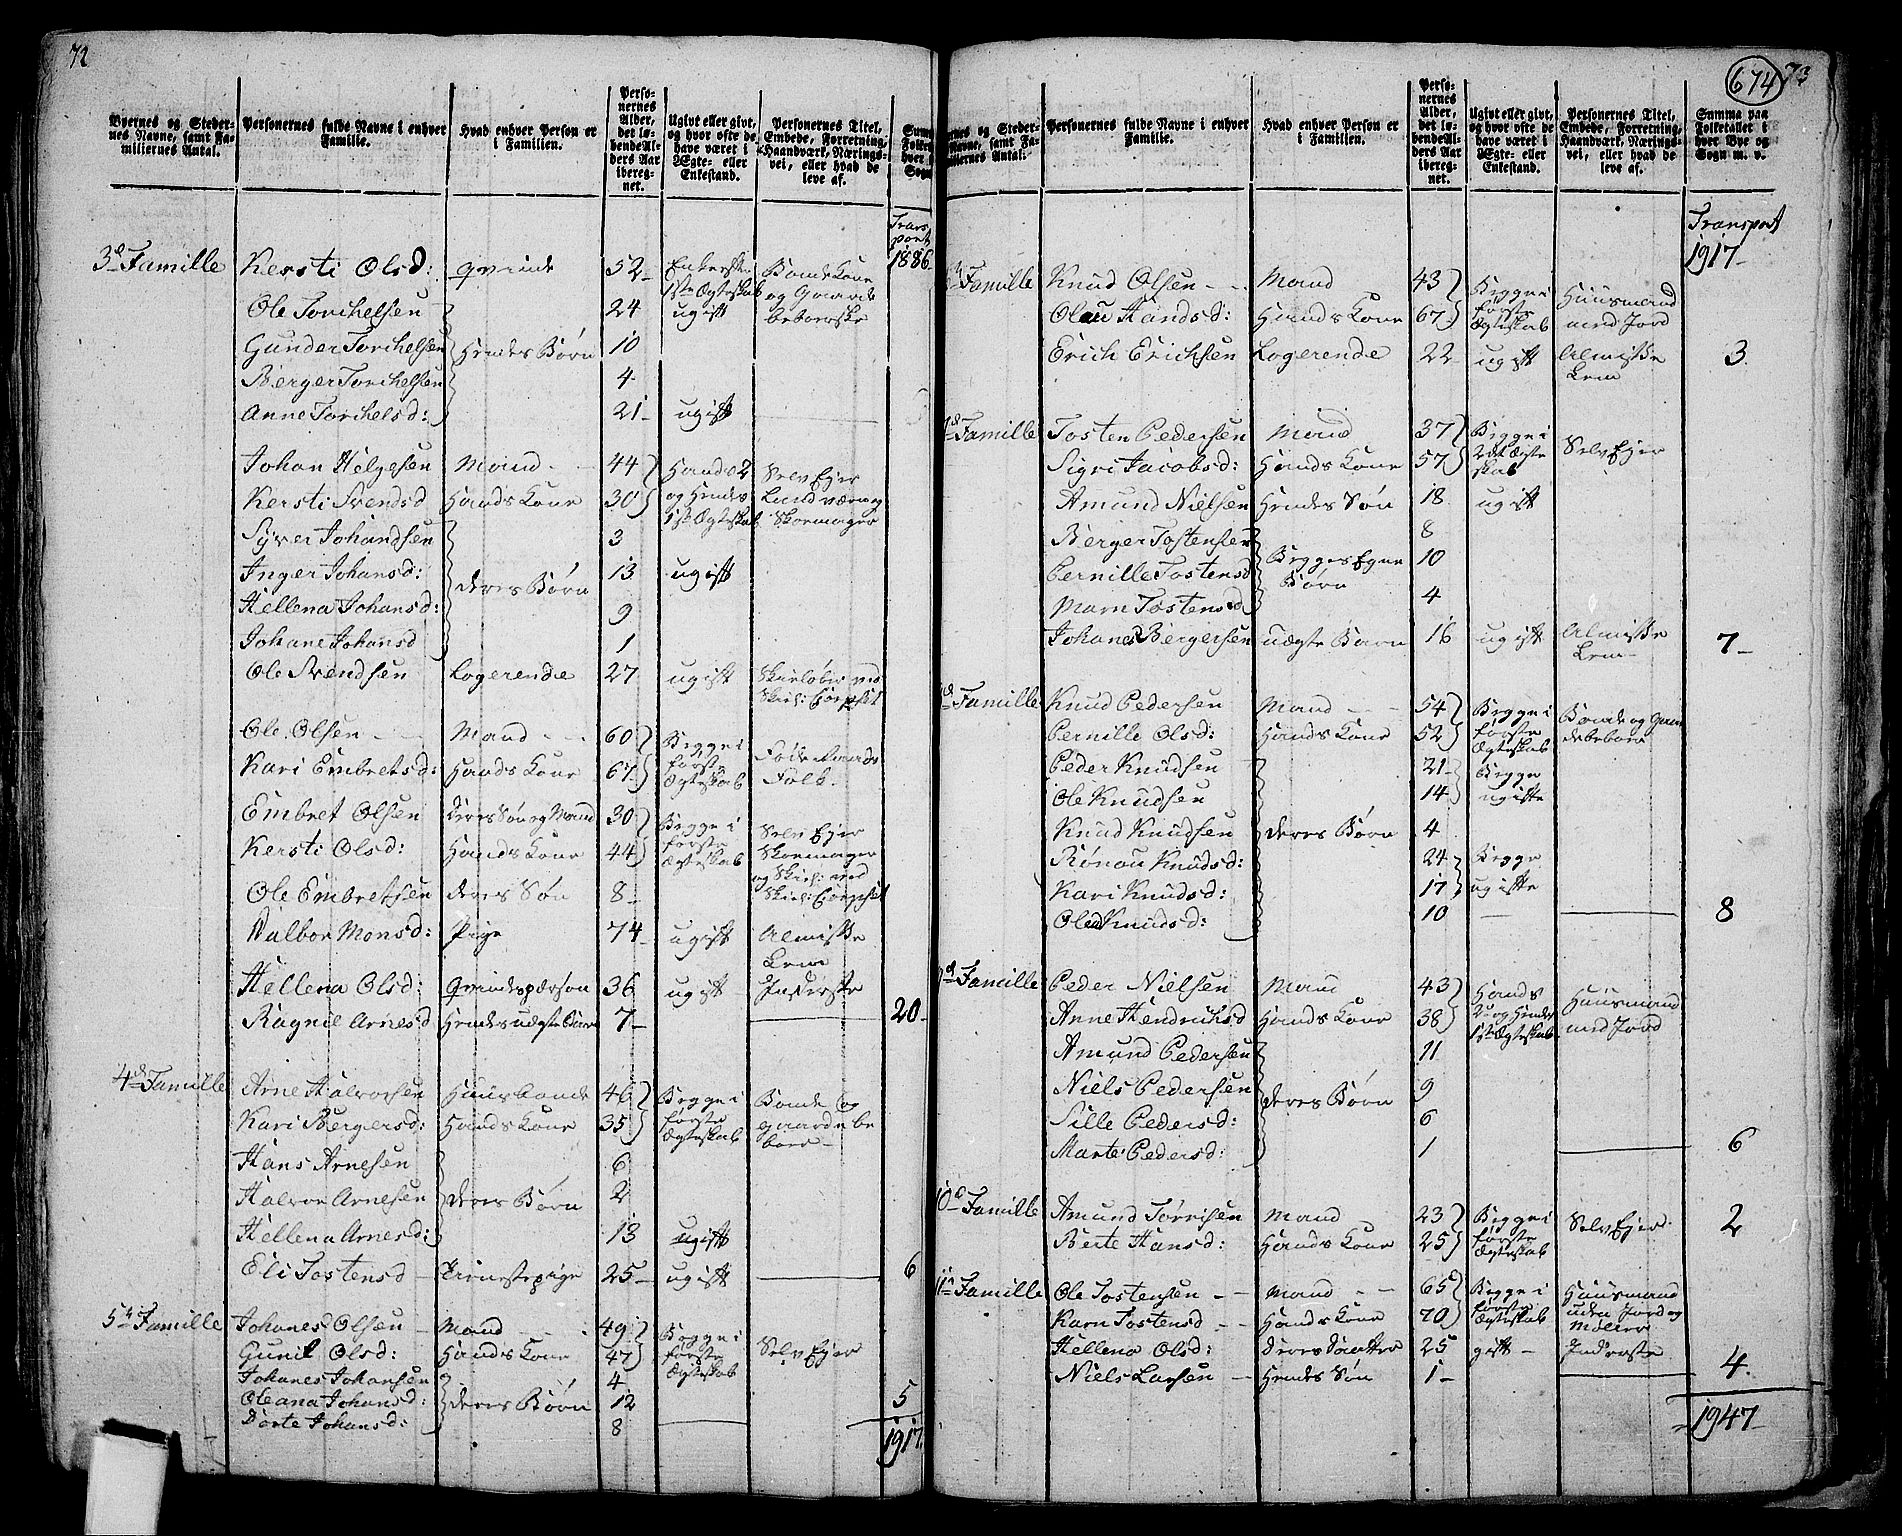 72
Byernes og Steder-
nes Navne, samt Fa-
miliernes Antal.
Personernes fulde Navne i enhver
Familie.
Hvad enhver Person er
i Familien.
Perso-
nernes
Alder,
det lø-
bende Al-
ders Aar
iberreg-
net.
Ugivt eller givt,
og hvor ofte de
have været i
Ægte- eller
Enkestand.
Personernes Titel,
Embede, Forretning,
Haandværk, Nærings-
vei, eller hvad de
leve af.
Trans
port
1886
3d Familie Kersti Olsd: qvinde 52 Enkerste 1ste Ægteskab Bonde Kone og Gaard beboerske
Ole Torchelsen 24 ugift
Gunder Torchelsen Hendes Børn 10
Berger Torchelsen 4
Anne Torchelsd: 21 ugift
Johan Helgesen Mand 44 Hands 2 og Hendes 1ste Ægteskab Selv Ejer
Kersti Svendsd Hands Kone 30 Skoemager
Syver Johandsen 3
Inger Johansd: deres Børn 13 ugift
Hellena Johansd: 9
Johane Johansd 1
Ole Svendsen Logerende 27 ugift Skieløber ved
Ole Olsen Mand 60 Begge i første Ægteskab Føderaads Folk
Kari Embretsd: Hands Kone 67
Embret Olsen Deres Søn og Mand 30 Begge i første Ægteskab Selv Ejer Skoemager
Kersti Olsd: Hands Kone 44
Ole Embretsen deres Søn 8
Valbor Monsd: Pige 74 ugift Almisse Lem
Hellena Olsd: Qvindespærson 36 ugift Inderste
Ragnil Arnesd Hendes uægte Barn 7 20
4de Familie Arne Halvorsen Huusbonde 46 Begge i første Ægteskab Bonde og gaardbe boer
Kari Bergersd: Hands Kone 35
Hans Arnesen 6
Halvor Arnesen deres Børn 2
Hellena Arnesd: 13 ugift
Eli Tostensd Tienestepige 25 ugift 6
5te Familie Johanes Olsen Mand 49 Begge i første Ægteskab Selv Ejer
Gunil Olsd: Hands Kone 47
Johanes Johansen 4
Oleana Johansd: deres Børn 12 5
Dorte Johansd: 8
1917
674 73
Personernes fulde Navne i enhver
Familie.
Hvad enhver Person er
i Familien.
Perso-
nernes
Alder,
det lø-
bende Al-
ders Aar
iberreg-
net.
Ugivt eller givt,
og hvor ofte de
have været i
Ægte- eller
Enkestand.
Personernes Titel,
Embede, Forretning,
Haandværk, Nærings-
vei, eller hvad de
leve af.
Summa paa
Folketallet i
hver Bye og
Sogn m. v.
Transport
1917
Familie Knud Olsen Mand 43 Begge i første Ægteskab Huusmand med Jord
Hands Kone 67
Erich Erichsen Logerende 22 ugift Almisse Lem 3
Familie Tosten Pedersen Mand 37 Begge i 2det Ægteskab Selv Ejer
Sigri Jacobsd: Hands Kone 57
Amund Nielsen Hendes Søn 18 ugift
Berger Tostensen 8
Pernille Tostensd Begges Egne Børn 10
Marn Tostensd 4
Johanes Bergersen uægte Barn 16 ugift Almisse Lem 7
Familie Knud Pedersen Mand 54 Begge i første Ægteskab Bonde og Gaardebeboer
Pernille Olsd: Hands Kone 52
Peder Knudsen 21 Begge ugifte
Ole Knudsen 14
Knud Knudsen deres Børn 4
Rønau Knudsd: 24 Begge ugifte
Kari Knudsd: 17
Olea Knudsd: 10 8
9de Familie Peder Nielsen Mand 43 Hands 2 og Hendes 1ste Ægteskab Huusmand med Jord
Anne Hendrichsd Hands Kone 38
Amund Pedersen 11
Niels Pedersen deres Børn 9
Sille Pedersd: 6
Marte Pedersd: 1 6
10d Familie Amund Tørrisen Mand 23 Begge i første Ægteskab Selv Ejer 2
Berte Hansd: Hands Kone 25
11te Familie Ole Tostensen Mand 65 Begge i første Ægteskab Huusmand uden Jord og Møller
Karn Tostensd Hands Kone 70
Hellena Olsd: deres Daatter 25 gift Inderste
Niels Larsen Hendes Søn 1 4
1947